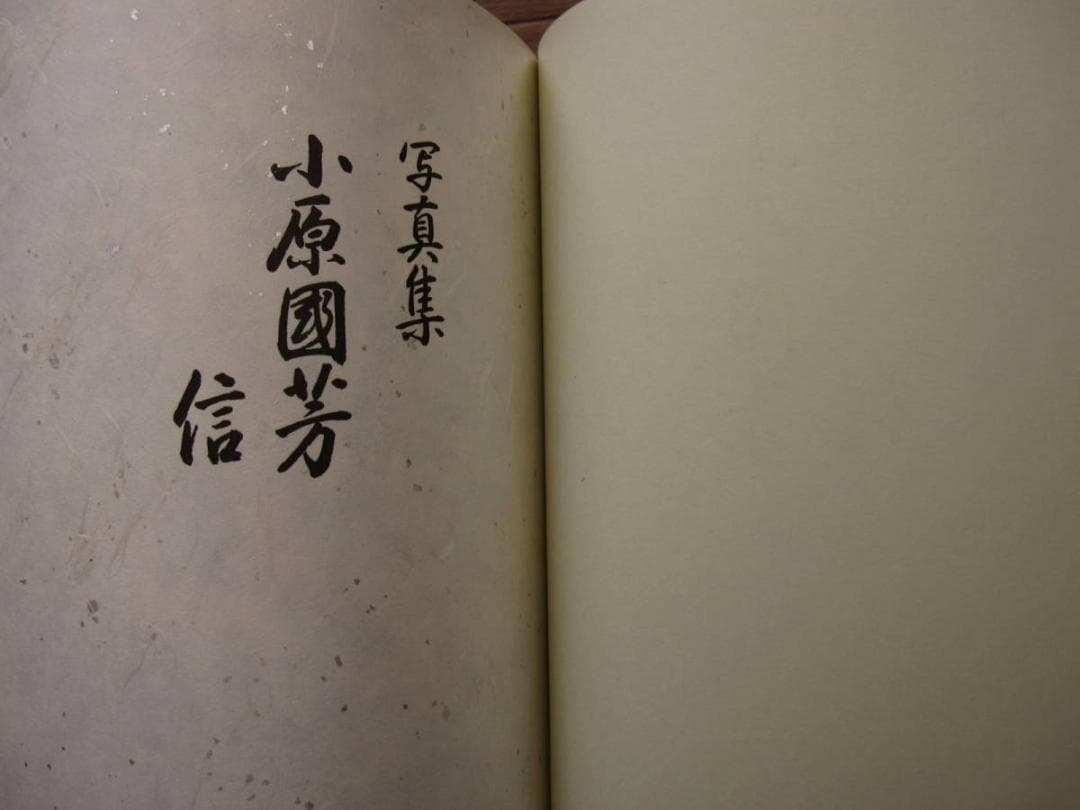 写真集
小原國芳
信